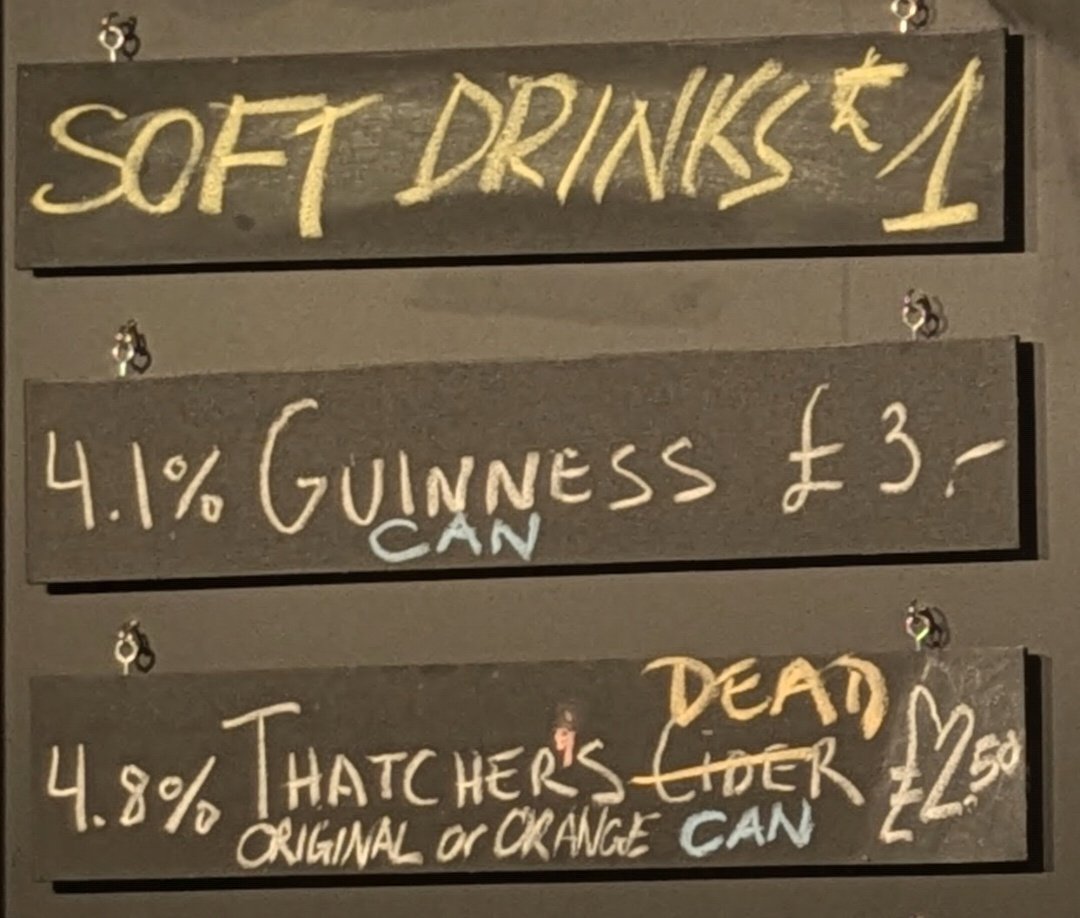 SOFT DRINKS £1
4.1% GUINNESS £3.-
CAN
DEAD
4.8% THATCHER'S CIDER £2.50
ORIGINAL or ORANGE CAN